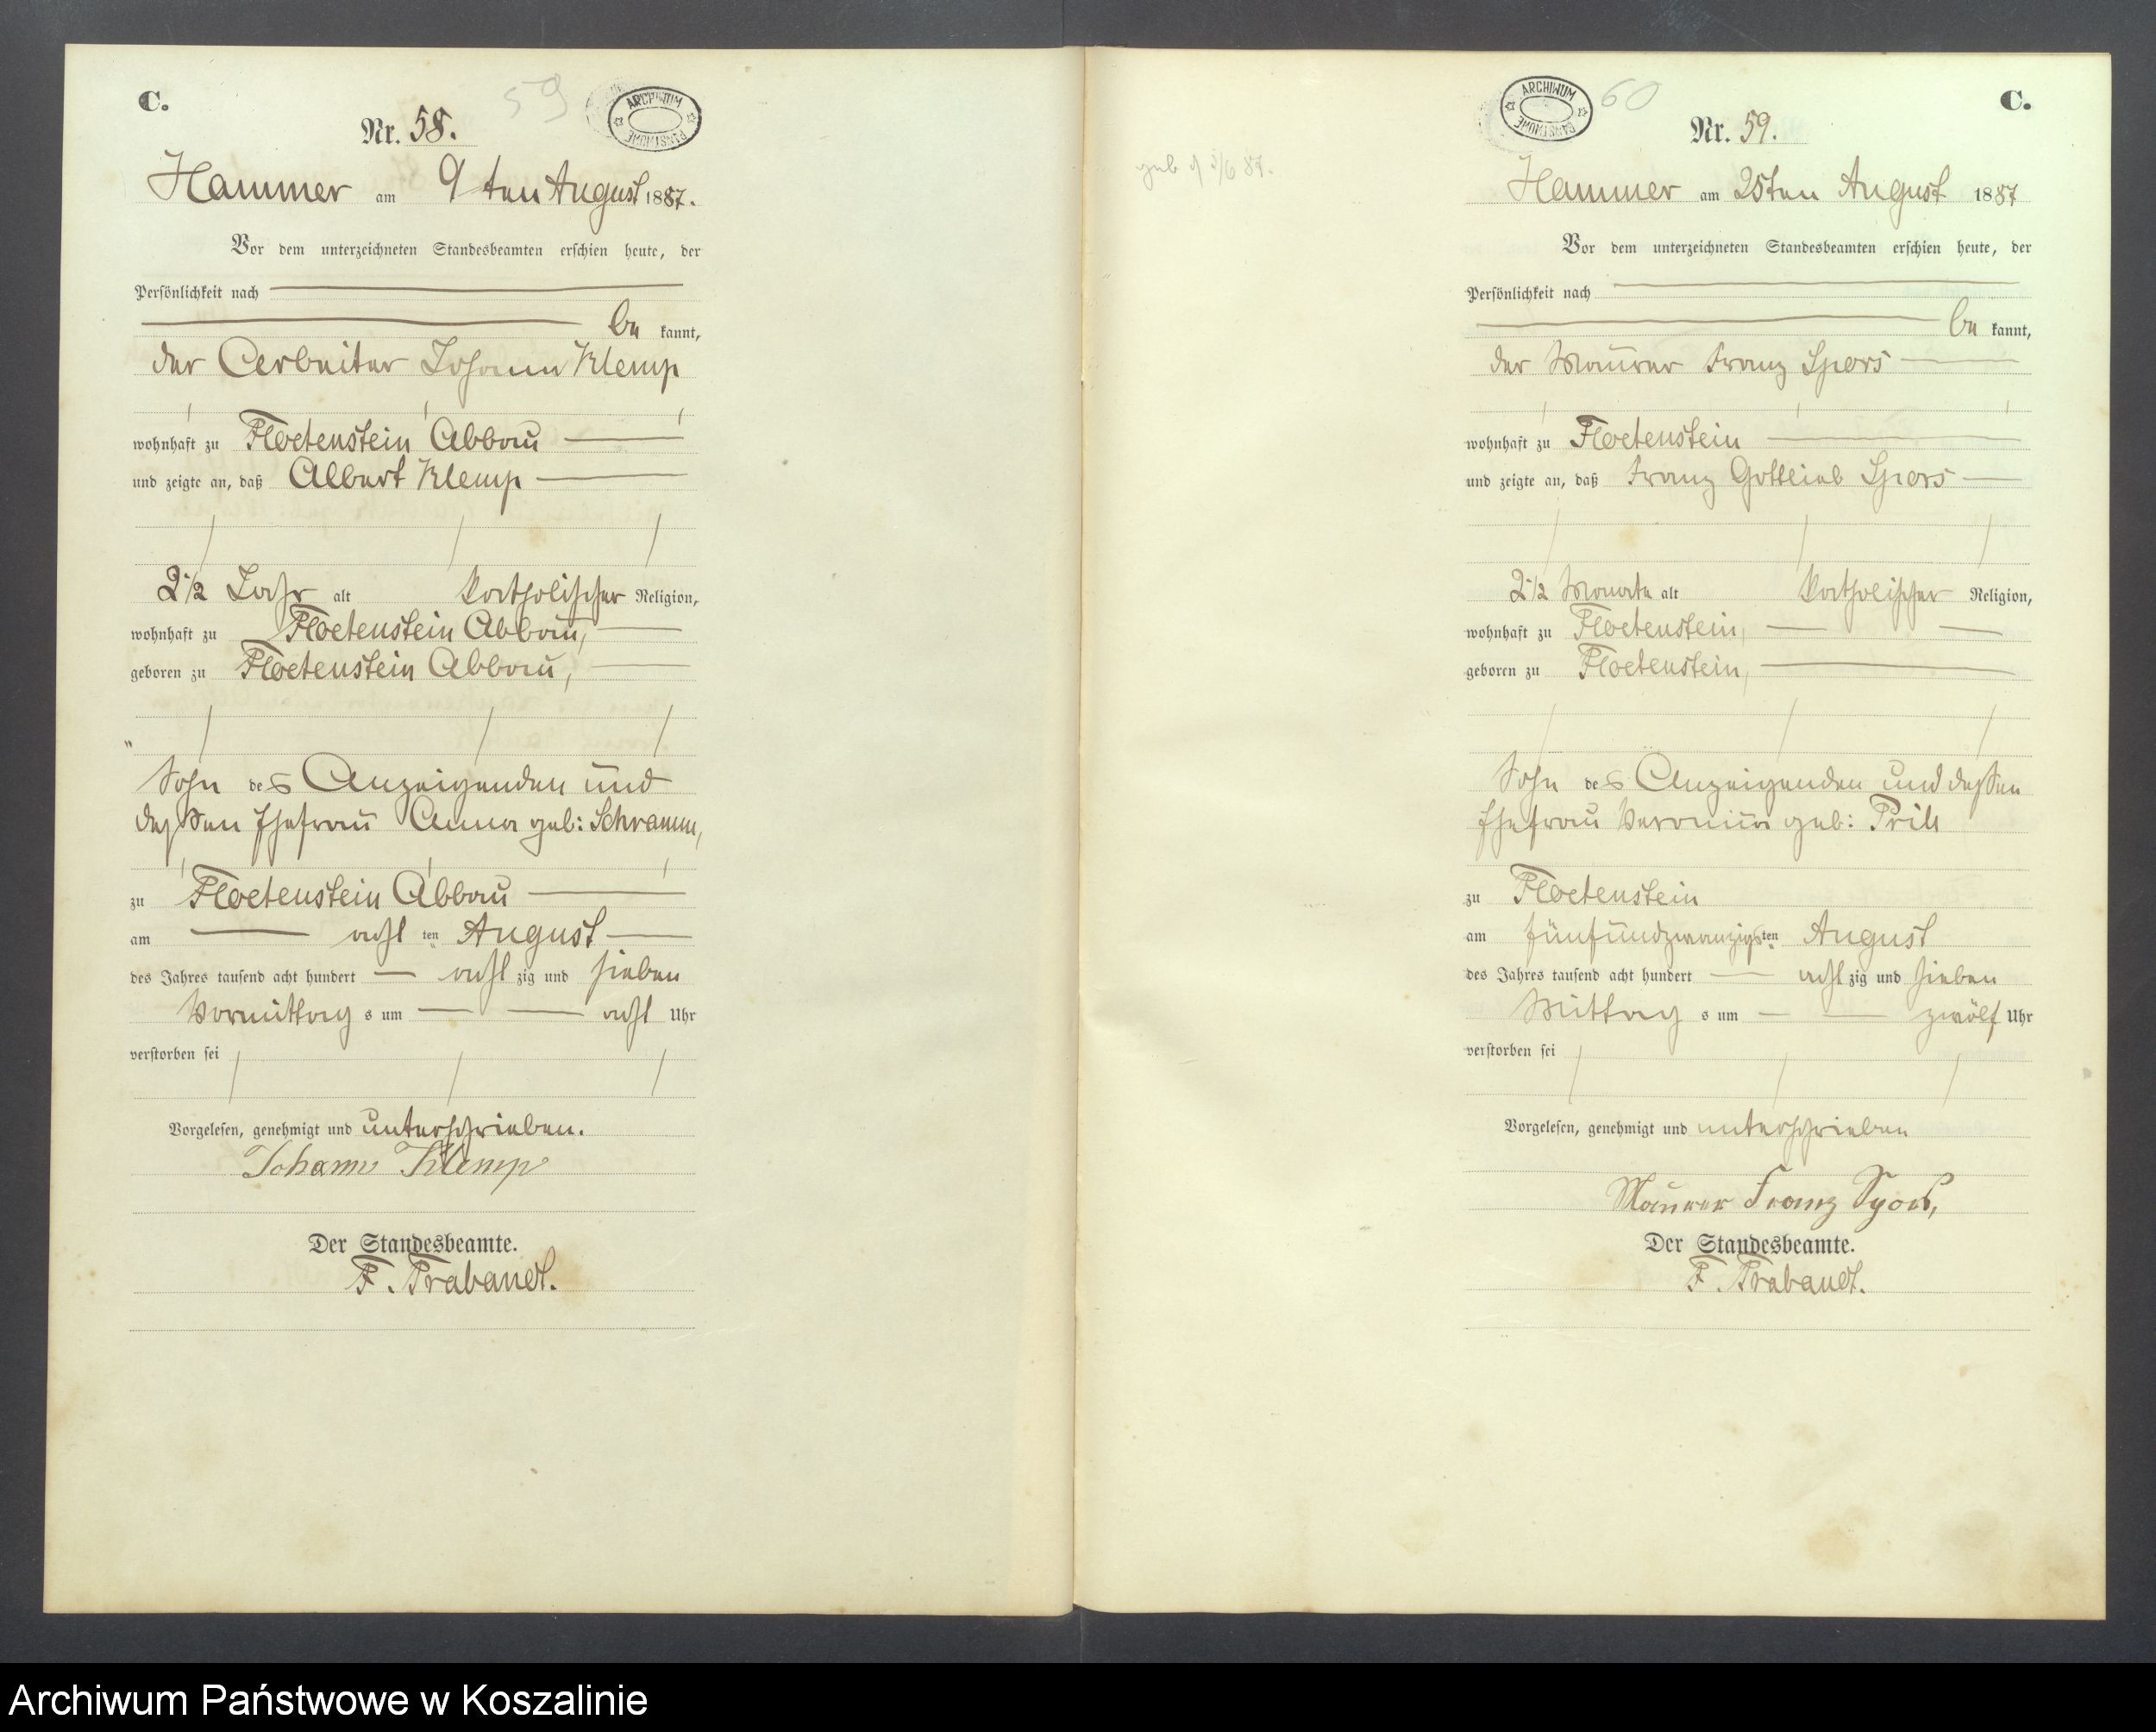 C.
59
ARCHIWUM PAŃSTWOWE
Nr. 58.
Hammer am 9ten August 1887.
Vor dem unterzeichneten Standesbeamten erschien heute, der
Persönlichkeit nach
be kannt,
der Arbeiter Johann Klemp
wohnhaft zu Floetenstein Abbau
und zeigte an, daß Albert Klemp
2 1/2 Jahr alt katholischer Religion,
wohnhaft zu Floetenstein Abbau,
geboren zu Floetenstein Abbau,
Sohn des Anzeigenden und
dessen Ehefrau Anna geb: Schramm,
zu Floetenstein Abbau
am acht ten August
des Jahres tausend acht hundert acht zig und sieben
Vormittag s um acht Uhr
verstorben sei
Vorgelesen, genehmigt und unterschrieben.
Johann Klemp
Der Standesbeamte.
F. Trabandt.
geb 3/6 87.
ARCHIWUM PAŃSTWOWE
60
C.
Nr. 59.
Hammer am 25ten August 1887
Vor dem unterzeichneten Standesbeamten erschien heute, der
Persönlichkeit nach
be kannt,
der Maurer Franz Spors
wohnhaft zu Floetenstein
und zeigte an, daß Franz Gottlieb Spors
2 1/2 Monate alt katholischer Religion,
wohnhaft zu Floetenstein,
geboren zu Floetenstein,
Sohn des Anzeigenden und dessen
Ehefrau Veronika geb: Prill
zu Floetenstein
am fünfundzwanzigsten August
des Jahres tausend acht hundert acht zig und sieben
Mittag s um zwölf Uhr
verstorben sei
Vorgelesen, genehmigt und unterschrieben
Maurer Franz Spors,
Der Standesbeamte.
F. Trabandt.
Archiwum Państwowe w Koszalinie